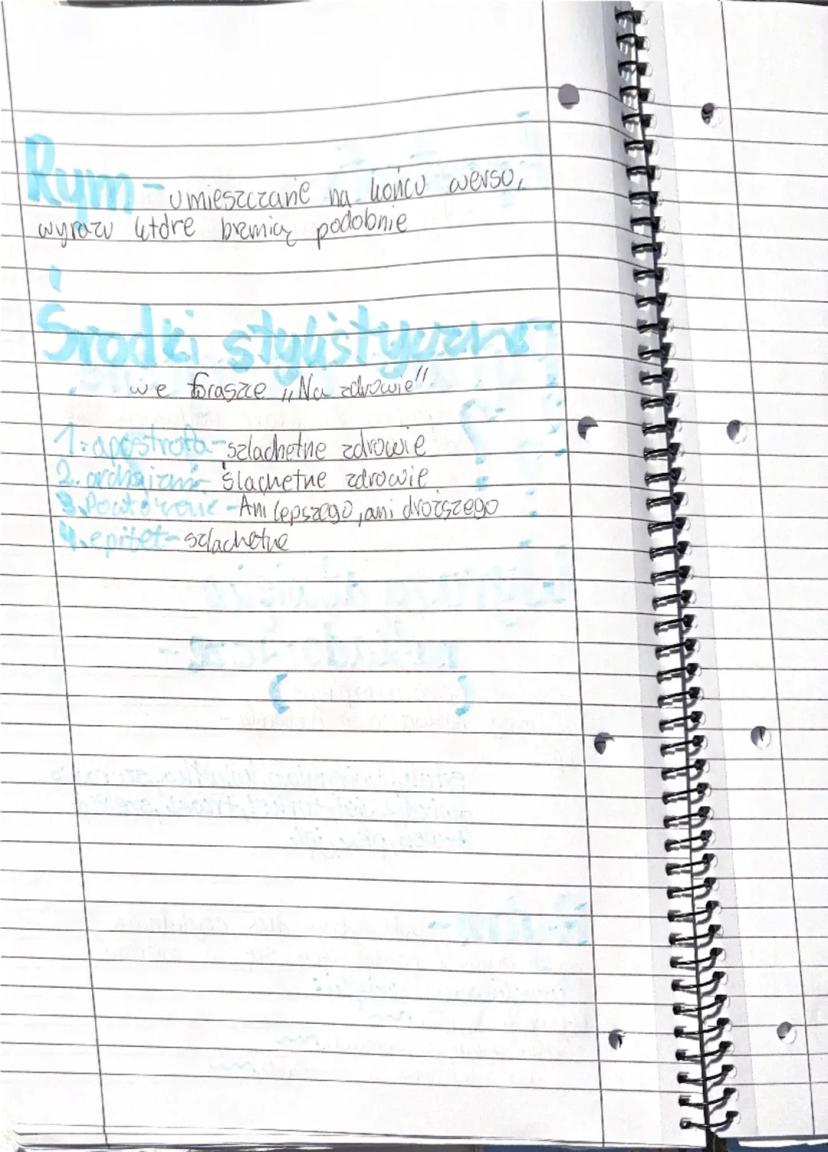 Rym - umieszczanie na końcu wersu,
wyrazu które brzmią podobnie
Środki stylistyczne-
we fraszce „Na zdrowie”
1. apostrofa - szlachetne zdrowie
2. archaizm - ślachetne zdrowie
3. Powtórzenie - Ani lepszego, ani droższego
4. epitet - szlachetne